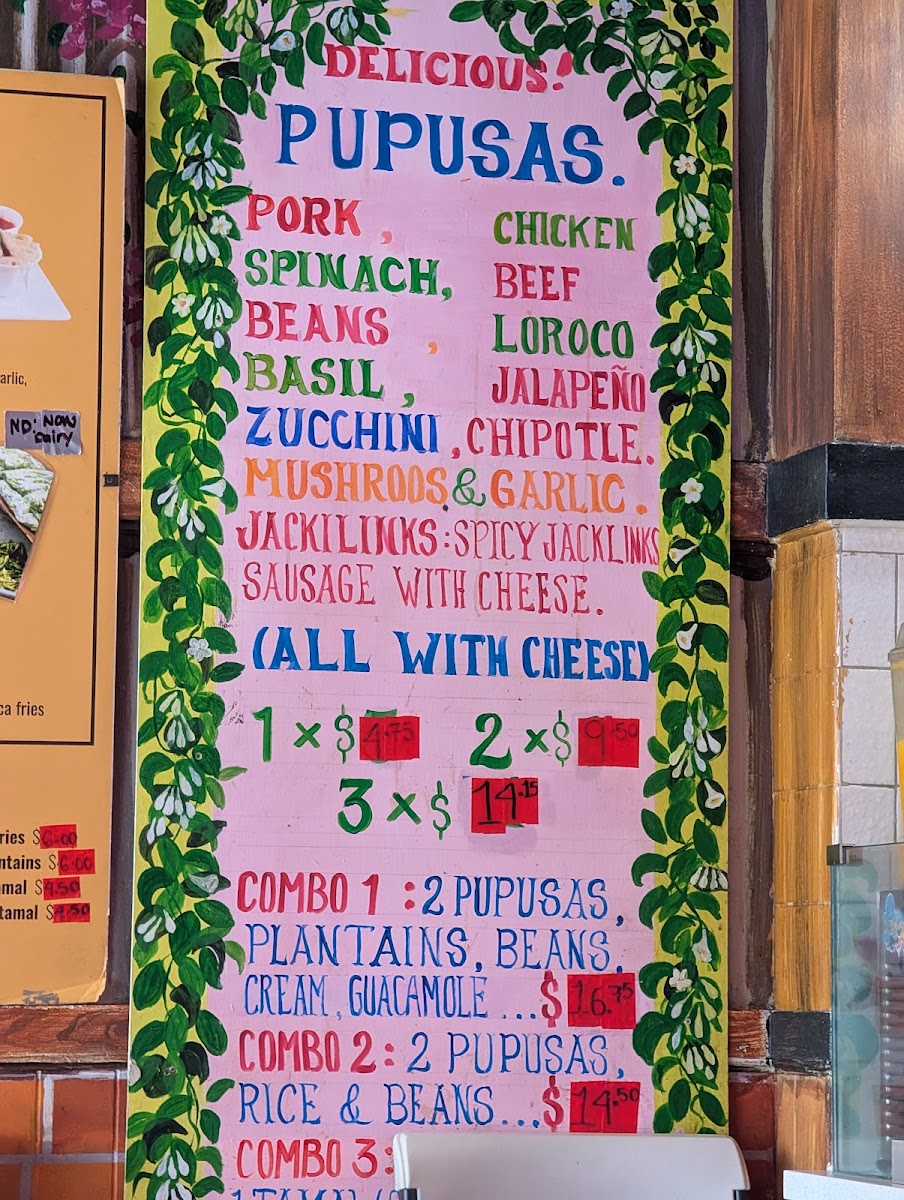 PUPUSAS
DELICIOUS!
PUPUSAS.
PORK , CHICKEN
SPINACH, BEEF
BEANS , LOROCO
BASIL , JALAPEÑO
ZUCCHINI , CHIPOTLE.
MUSHROOS & GARLIC .
JACKILINKS: SPICY JACKLINKS
SAUSAGE WITH CHEESE.
(ALL WITH CHEESE)
1 x $ 4.75 2 x $ 9.50
3 x $ 14.15
COMBO 1 : 2 PUPUSAS,
PLANTAINS, BEANS,
CREAM, GUACAMOLE ... $ 16.75
COMBO 2: 2 PUPUSAS,
RICE & BEANS ... $ 14.50
COMBO 3:
arlic,
ND: NON
Dairy
ca fries
ries $6.00
ntains $6.00
mal $4.50
tamal $4.50